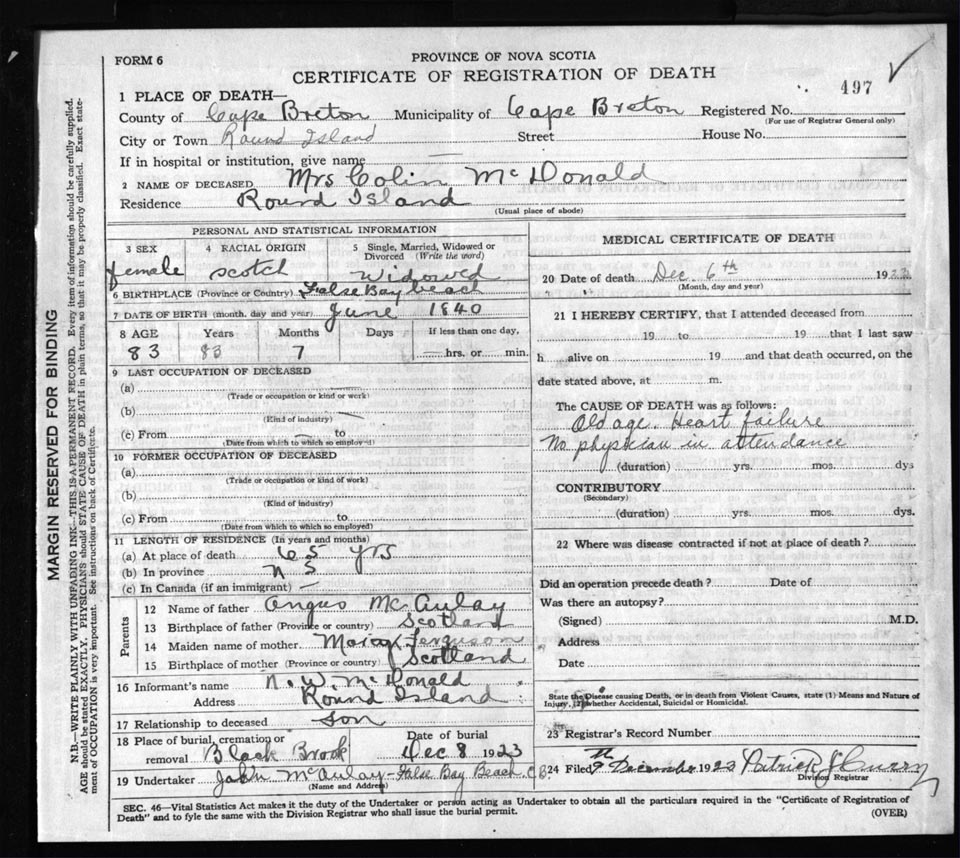 FORM 6
PROVINCE OF NOVA SCOTIA
CERTIFICATE OF REGISTRATION OF DEATH
497
1 PLACE OF DEATH—
County of Cape Breton Municipality of Cape Breton Registered No.
(For use of Registrar General only)
City or Town Round Island Street House No.
If in hospital or institution, give name —
2 NAME OF DECEASED Mrs Colin McDonald
Residence Round Island
(Usual place of abode)
PERSONAL AND STATISTICAL INFORMATION
3 SEX 4 RACIAL ORIGIN 5 Single, Married, Widowed or Divorced (Write the word)
female scotch Widowed
6 BIRTHPLACE (Province or Country) False Bay beach
7 DATE OF BIRTH (month, day and year) June 1840
8 AGE Years Months Days If less than one day,
83 83 7 — hrs. or min.
9 LAST OCCUPATION OF DECEASED
(a) —
(Trade or occupation or kind or work)
(b) —
(Kind of industry)
(c) From — to
(Date from which to which so employed)
10 FORMER OCCUPATION OF DECEASED
(a)
(Trade or occupation or kind of work)
(b)
(Kind of industry)
(c) From to
(Date from which to which so employed)
11 LENGTH OF RESIDENCE (In years and months)
(a) At place of death 65 yrs
(b) In province N S
(c) In Canada (if an immigrant) —
Parents
12 Name of father Angus McAulay
13 Birthplace of father (Province or country) Scotland
14 Maiden name of mother Ferguson
15 Birthplace of mother (Province or country) Scotland
16 Informant's name N. W. McDonald
Address Round Island
17 Relationship to deceased son
18 Place of burial, cremation or removal Black Brook Date of burial Dec 8 1923
19 Undertaker John McAulay - False Bay Beach C B
(Name and Address)
MEDICAL CERTIFICATE OF DEATH
20 Date of death Dec. 6th 1923
(Month, day and year)
21 I HEREBY CERTIFY, that I attended deceased from
19 to 19 that I last saw
h alive on 19 and that death occurred, on the
date stated above, at m.
The CAUSE OF DEATH was as follows:
Old age. Heart failure
No physician in attendance
(duration) yrs. mos. dys
CONTRIBUTORY
(Secondary)
(duration) yrs. mos. dys.
22 Where was disease contracted if not at place of death?
Did an operation precede death? Date of
Was there an autopsy?
(Signed) M.D.
Address
Date
State the Disease causing Death, or in death from Violent Causes, state (1) Means and Nature of
Injury, (2) whether Accidental, Suicidal or Homicidal.
23 Registrar's Record Number
24 Filed 9th December 1923 Patrick J Curry
Division Registrar
SEC. 46—Vital Statistics Act makes it the duty of the Undertaker or person acting as Undertaker to obtain all the particulars required in the "Certificate of Registration of
Death" and to fyle the same with the Division Registrar who shall issue the burial permit.
(OVER)
MARGIN RESERVED FOR BINDING
N.B.—WRITE PLAINLY WITH UNFADING INK—THIS IS A PERMANENT RECORD. Every item of information should be carefully supplied.
AGE should be stated EXACTLY. PHYSICIANS should STATE CAUSE OF DEATH in plain terms, so that it may be properly classified. Exact state-
ment of OCCUPATION is very important. See instructions on back of Certificate.